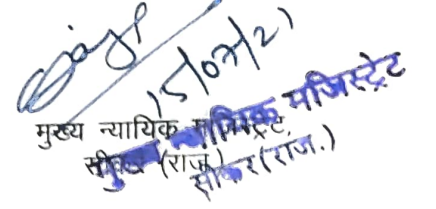 15/07/21
मुख्य न्यायिक मजिस्ट्रेट,
सीकर (राज.)
मुख्य न्यायिक मजिस्ट्रेट
सीकर (राज.)